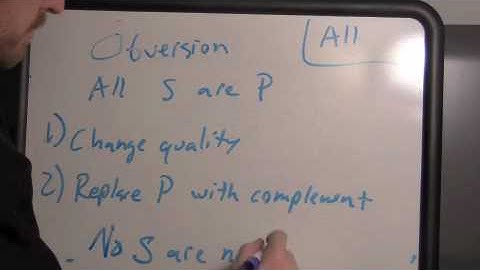 Obversion
All
All S are P
1) Change quality
2) Replace P with complement
No S are n